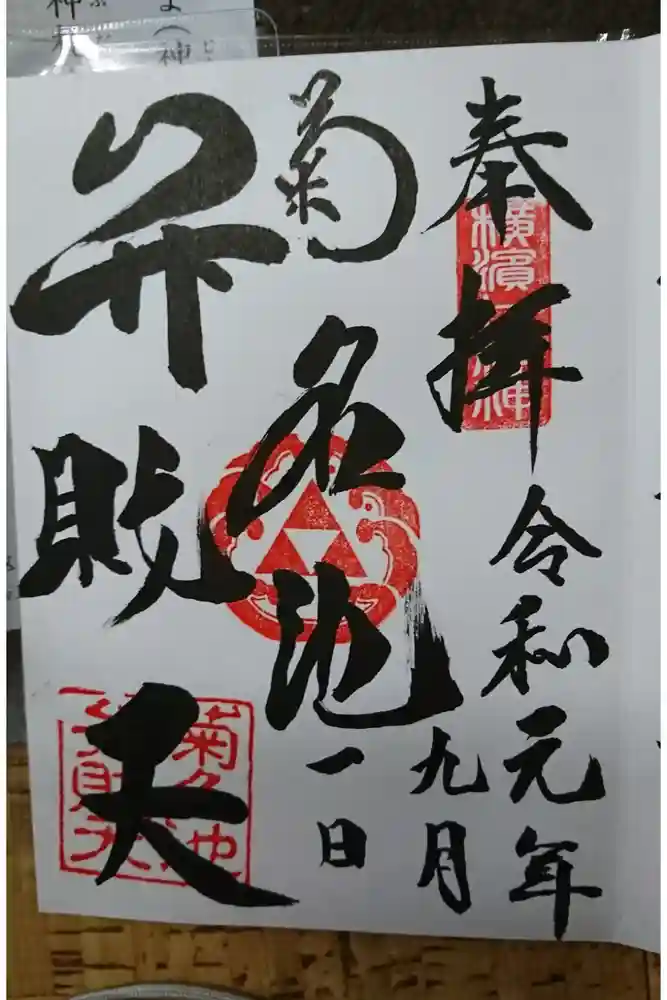 奉拝
令和元年
九月
一日
菊名池
弁財天
横濱
菊名池
弁財天